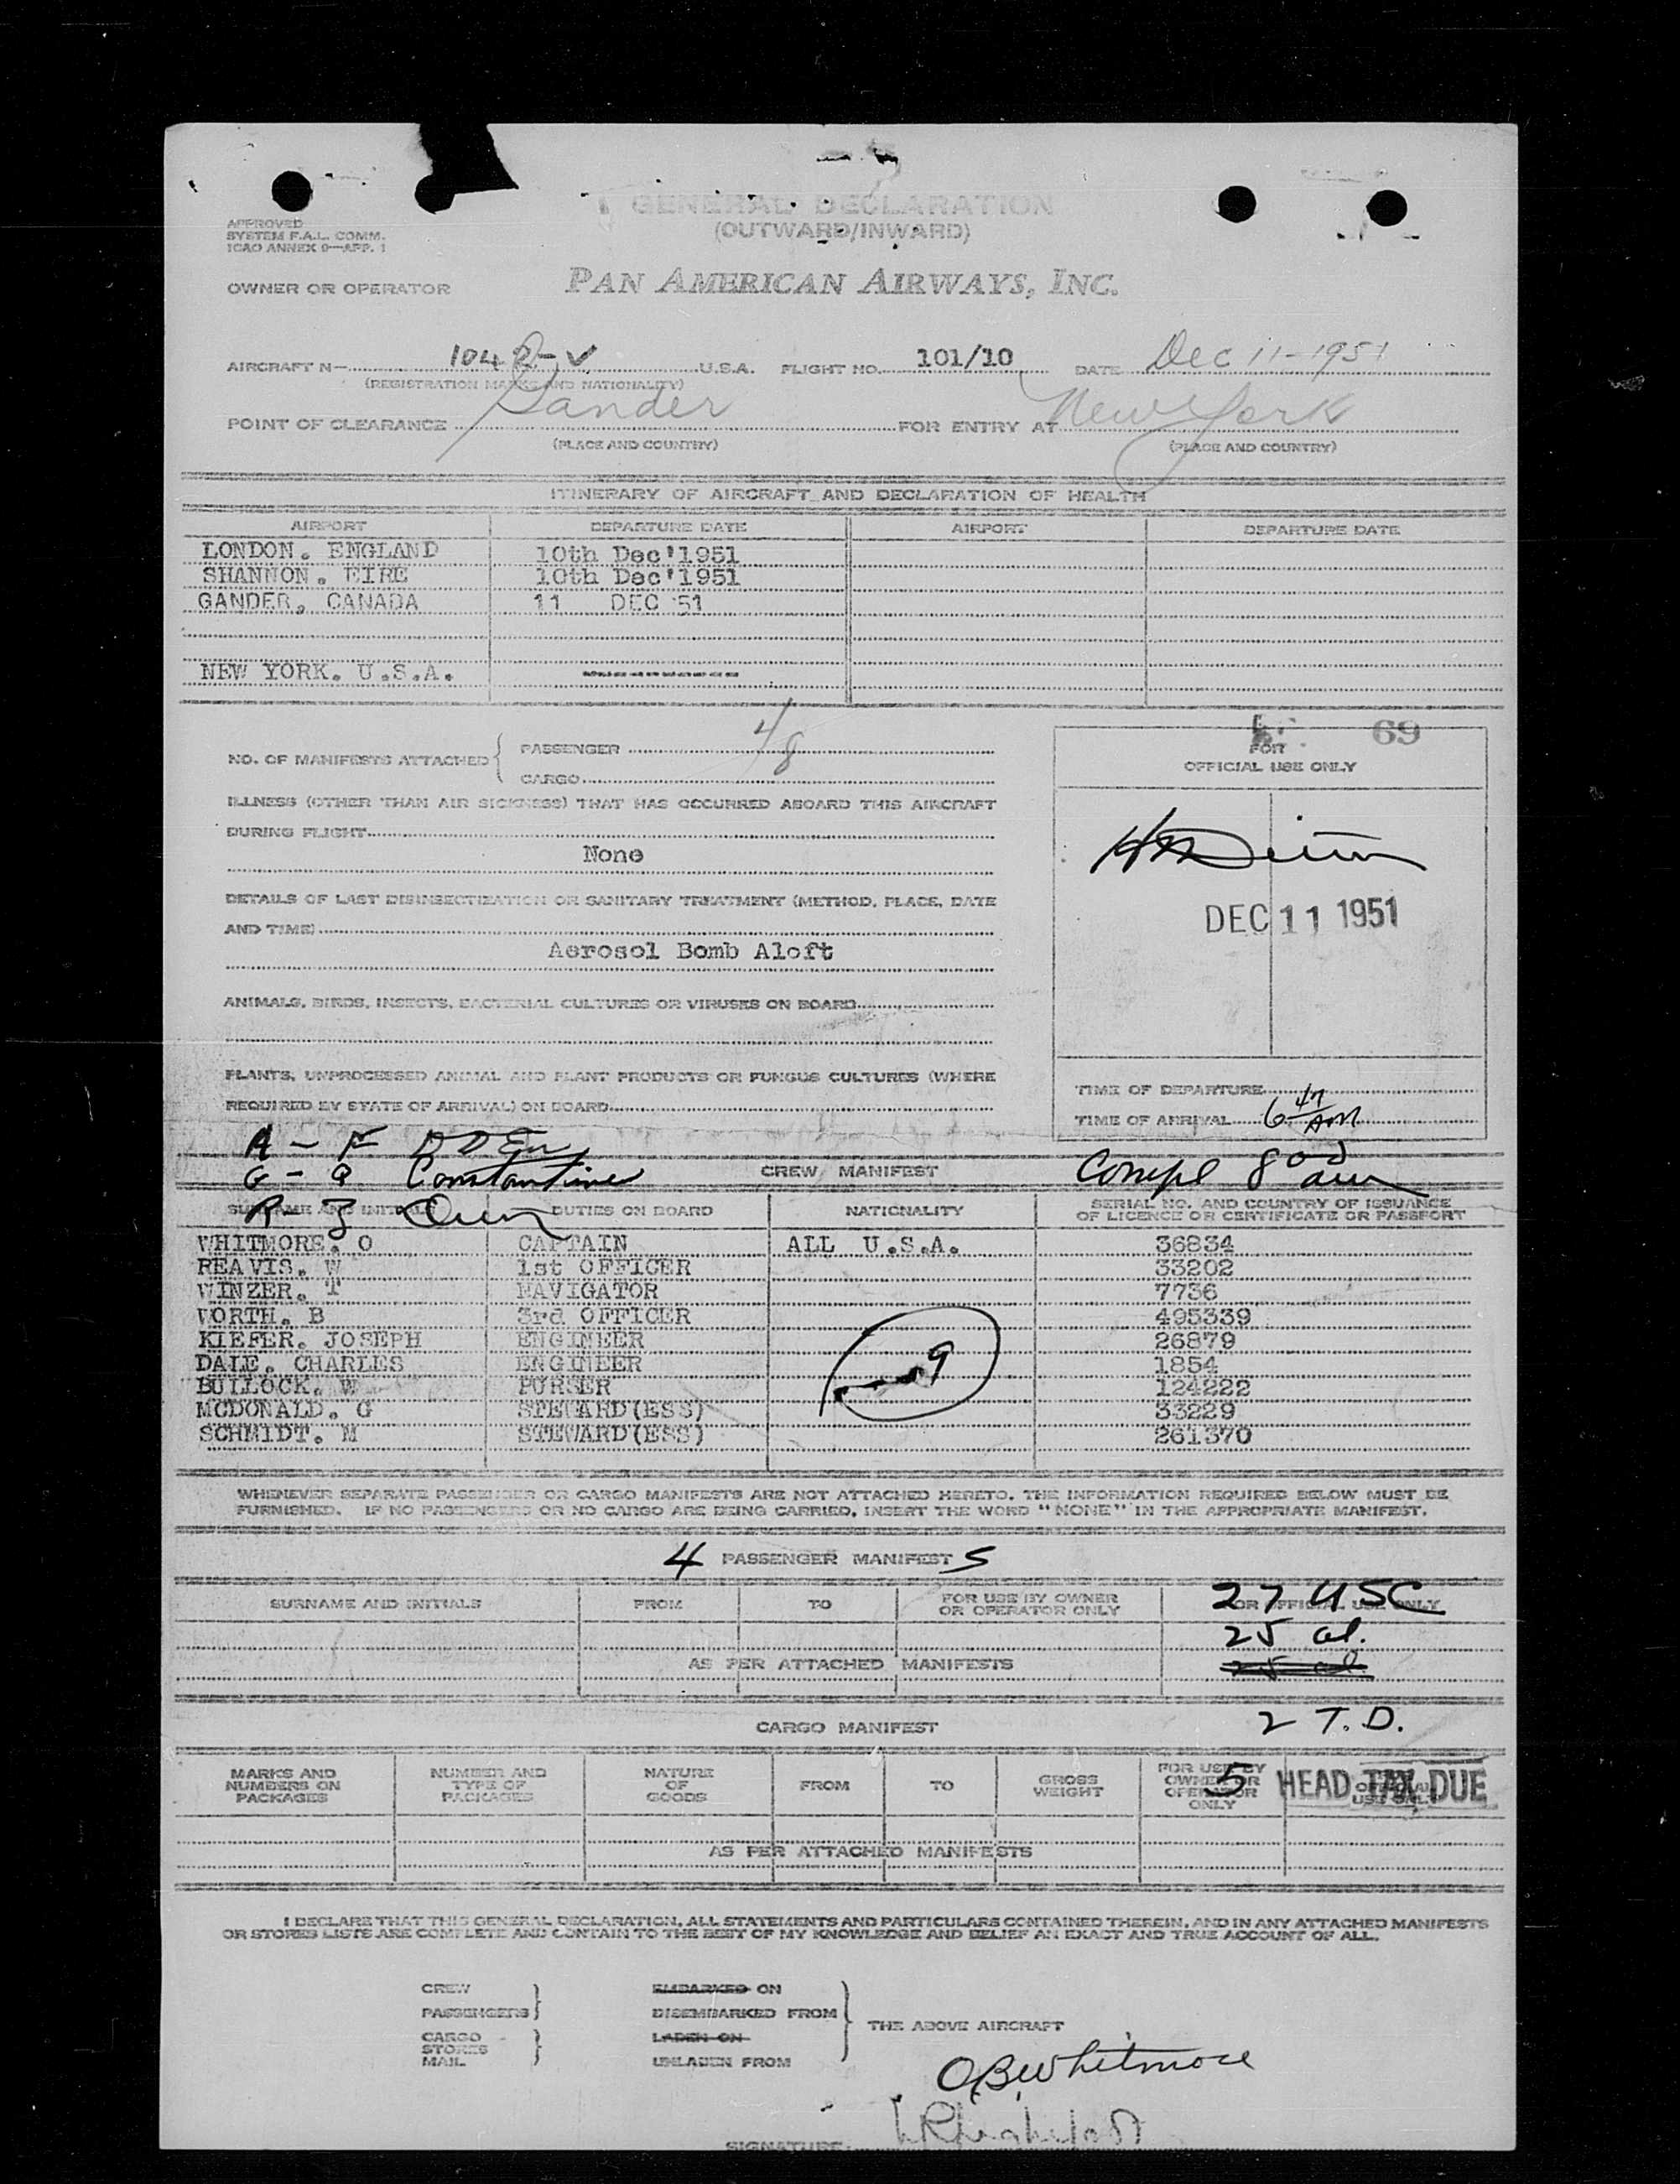 GENERAL DECLARATION
(OUTWARD/INWARD)
APPROVED
SYSTEM F.A.L. COMM.
ICAO ANNEX 9—APP. 1
OWNER OR OPERATOR PAN AMERICAN AIRWAYS, INC.
AIRCRAFT N— 1042-V U.S.A. FLIGHT NO. 101/10 DATE Dec 11-1951
(REGISTRATION MARKS AND NATIONALITY)
POINT OF CLEARANCE Gander FOR ENTRY AT New York
(PLACE AND COUNTRY) (PLACE AND COUNTRY)
ITINERARY OF AIRCRAFT AND DECLARATION OF HEALTH
AIRPORT DEPARTURE DATE AIRPORT DEPARTURE DATE
LONDON. ENGLAND 10th Dec'1951
SHANNON. EIRE 10th Dec'1951
GANDER, CANADA 11 DEC 51
NEW YORK. U.S.A. --------
69
NO. OF MANIFESTS ATTACHED { PASSENGER 4
CARGO 8
FOR
OFFICIAL USE ONLY
ILLNESS (OTHER THAN AIR SICKNESS) THAT HAS OCCURRED ABOARD THIS AIRCRAFT
DURING FLIGHT
None
DETAILS OF LAST DISINSECTIZATION OR SANITARY TREATMENT (METHOD, PLACE, DATE
AND TIME)
DEC 11 1951
Aerosol Bomb Aloft
ANIMALS, BIRDS, INSECTS, BACTERIAL CULTURES OR VIRUSES ON BOARD
PLANTS, UNPROCESSED ANIMAL AND PLANT PRODUCTS OR FUNGUS CULTURES (WHERE
REQUIRED BY STATE OF ARRIVAL) ON BOARD
TIME OF DEPARTURE
TIME OF ARRIVAL 6 47 AM
A - F
G - Q Constantine
CREW MANIFEST
Compl 8 00 am
R - Z
SURNAME AND INITIALS DUTIES ON BOARD NATIONALITY SERIAL NO. AND COUNTRY OF ISSUANCE
OF LICENCE OR CERTIFICATE OR PASSPORT
WHITMORE. O CAPTAIN ALL U.S.A. 36834
REAVIS. W 1st OFFICER 33202
WINZER. T NAVIGATOR 7736
WORTH. B 3rd OFFICER 495339
KIEFER. JOSEPH ENGINEER 26879
DALE. CHARLES ENGINEER 1854
BULLOCK. W PURSER 124222
MCDONALD. G STEWARD(ESS) 33229
SCHMIDT. M STEWARD(ESS) 261370
9
WHENEVER SEPARATE PASSENGER OR CARGO MANIFESTS ARE NOT ATTACHED HERETO, THE INFORMATION REQUIRED BELOW MUST BE
FURNISHED. IF NO PASSENGERS OR NO CARGO ARE BEING CARRIED, INSERT THE WORD "NONE" IN THE APPROPRIATE MANIFEST.
4 PASSENGER MANIFESTS
SURNAME AND INITIALS FROM TO FOR USE BY OWNER
OR OPERATOR ONLY FOR OFFICIAL USE ONLY
27 USC
25 al.
AS PER ATTACHED MANIFESTS
25 al.
CARGO MANIFEST
2 T.D.
MARKS AND
NUMBERS ON
PACKAGES
NUMBER AND
TYPE OF
PACKAGES
NATURE
OF
GOODS
FROM TO GROSS
WEIGHT
FOR USE BY
OWNER OR
OPERATOR
ONLY
5 HEAD TAX DUE
AS PER ATTACHED MANIFESTS
I DECLARE THAT THIS GENERAL DECLARATION, ALL STATEMENTS AND PARTICULARS CONTAINED THEREIN, AND IN ANY ATTACHED MANIFESTS
OR STORES LISTS ARE COMPLETE AND CONTAIN TO THE BEST OF MY KNOWLEDGE AND BELIEF AN EXACT AND TRUE ACCOUNT OF ALL.
CREW EMBARKED ON
PASSENGERS DISEMBARKED FROM
CARGO LADEN ON
STORES
MAIL UNLADEN FROM
THE ABOVE AIRCRAFT
OBWhitmore
SIGNATURE